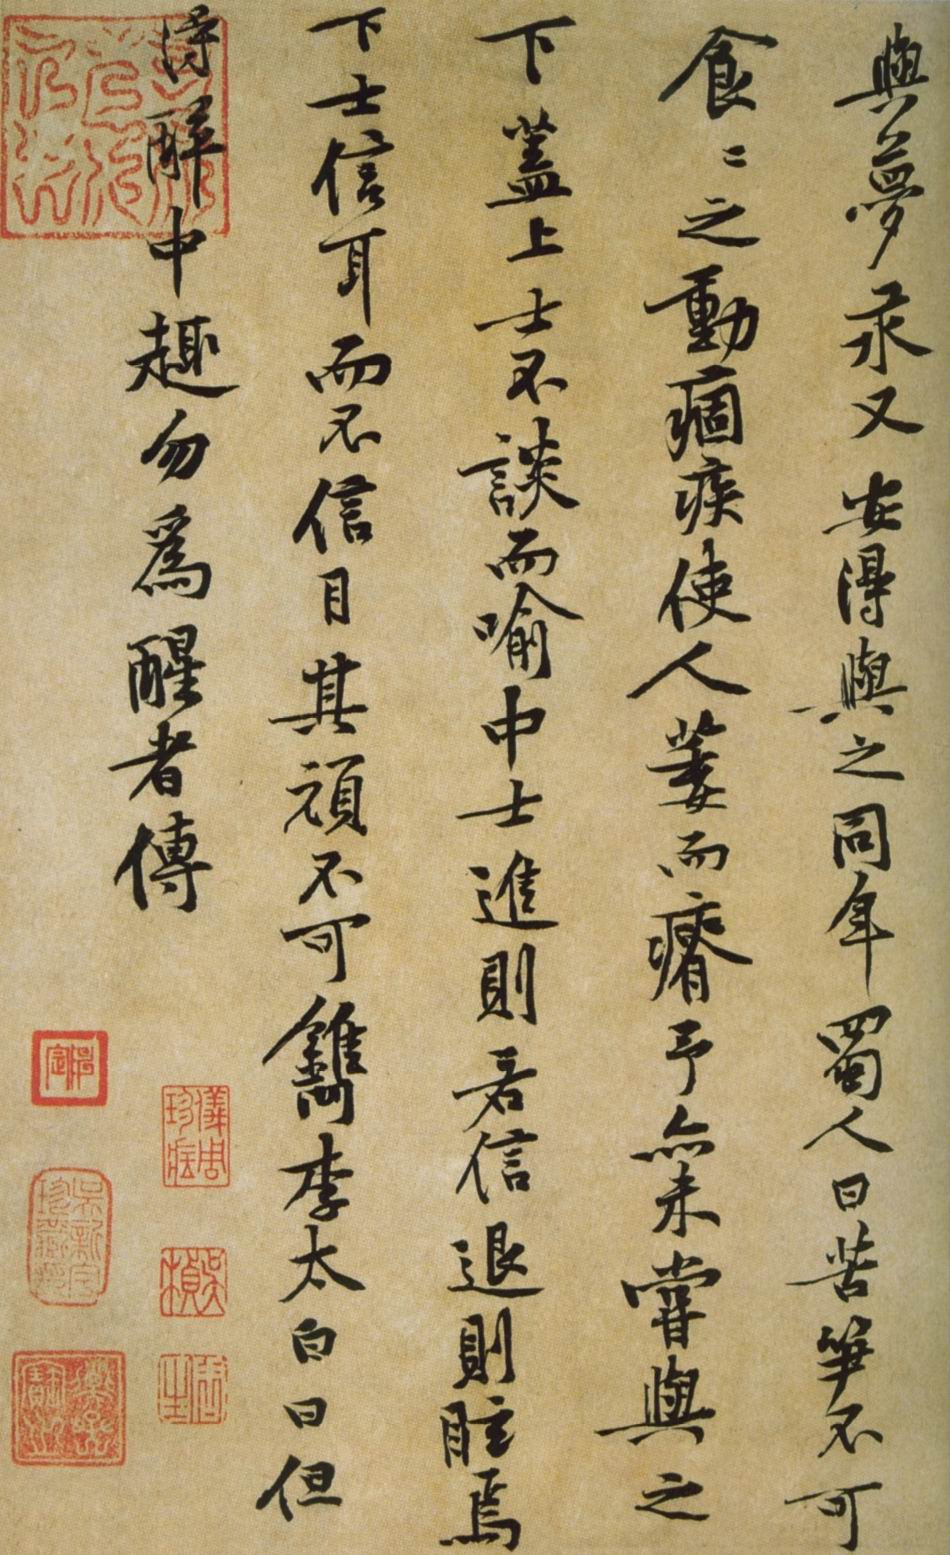 與夢永又安得與之同年蜀人曰苦笋不可
食〻之動痼疾使人萎而瘠予亦未嘗與之
下蓋上士不談而喻中士進則若信退則眩焉
下士信耳而不信目其頑不可鐫李太白曰但
得醉中趣勿爲醒者傳
儀周珍藏
吳楨
吳新宇珍藏印